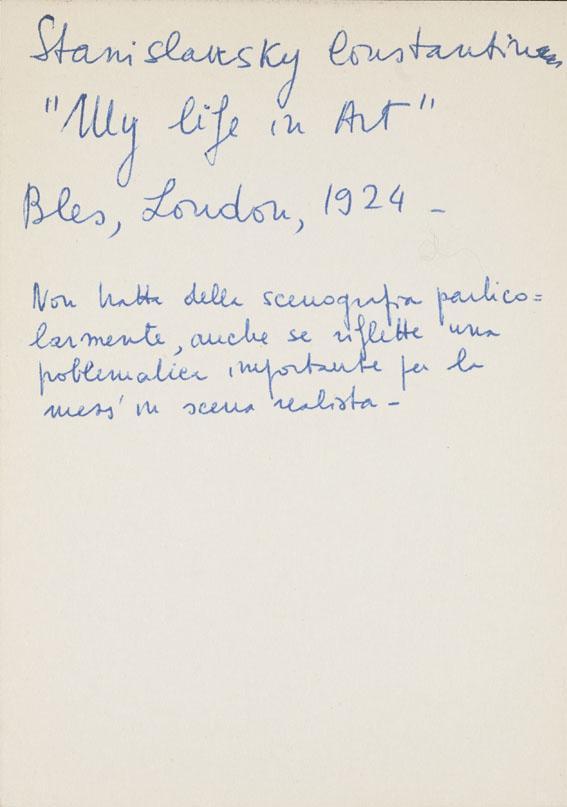 Stanislavsky Constantin
"My life in Art"
Bles, London, 1924 -
Non tratta della scenografia partico=
larmente, anche se riflette una
problematica importante per la
mess' in scena realista -